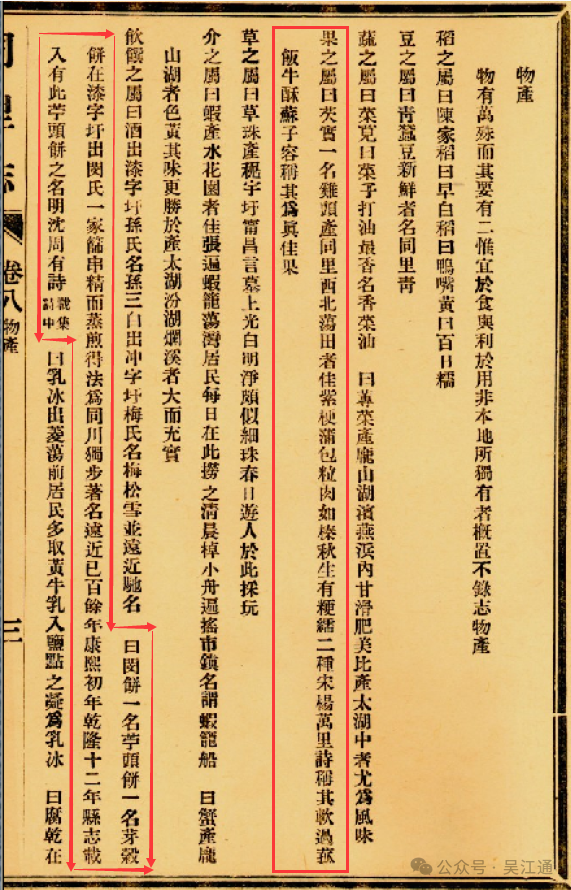 物產
物有萬殊而其要有二惟宜於食與利於用非本地所獨有者槪置不錄志物產
稻之屬曰陳家稻曰早白稻曰鴨嘴黃曰百日糯
豆之屬曰靑蠶豆新鮮者名同里靑
蔬之屬曰菜莧曰菜子打油最香名香菜油 曰蓴菜產龐山湖濱燕浜內甘滑肥美比產太湖中者尤爲風味
果之屬曰芡實一名雞頭產同里西北蕩田者佳紫梗蒲包粒肉如榛秋生有粳糯二種宋楊萬里詩稱其軟過菰
飯牛酥蘇子容稱其爲眞佳果
草之屬曰草珠產穐字圩甯昌言墓上光白明淨頗似細珠春日遊人於此採玩
介之屬曰蝦產水花園者佳張逼蝦籠蕩灣居民每日在此撈之淸晨棹小舟遍搖市鎭名謂蝦籠船 曰蟹產龐
山湖者色黃其味更勝於產太湖汾湖爛溪者大而充實
飮饌之屬曰酒出漆字圩孫氏名孫三白出冲字圩梅氏名梅松雪並遠近馳名 曰閔餅一名苧頭餅一名芽穀
餅在漆字圩出閔氏一家餡串精而蒸煎得法爲同川獨步著名遠近已百餘年康熙初年乾隆十二年縣志載
入有此苧頭餅之名明沈周有詩 載集詩中 曰乳冰出菱蕩前居民多取黃牛乳入鹽點之凝爲乳冰 曰腐乾在
卷八 物產
三
公众号·吴江通